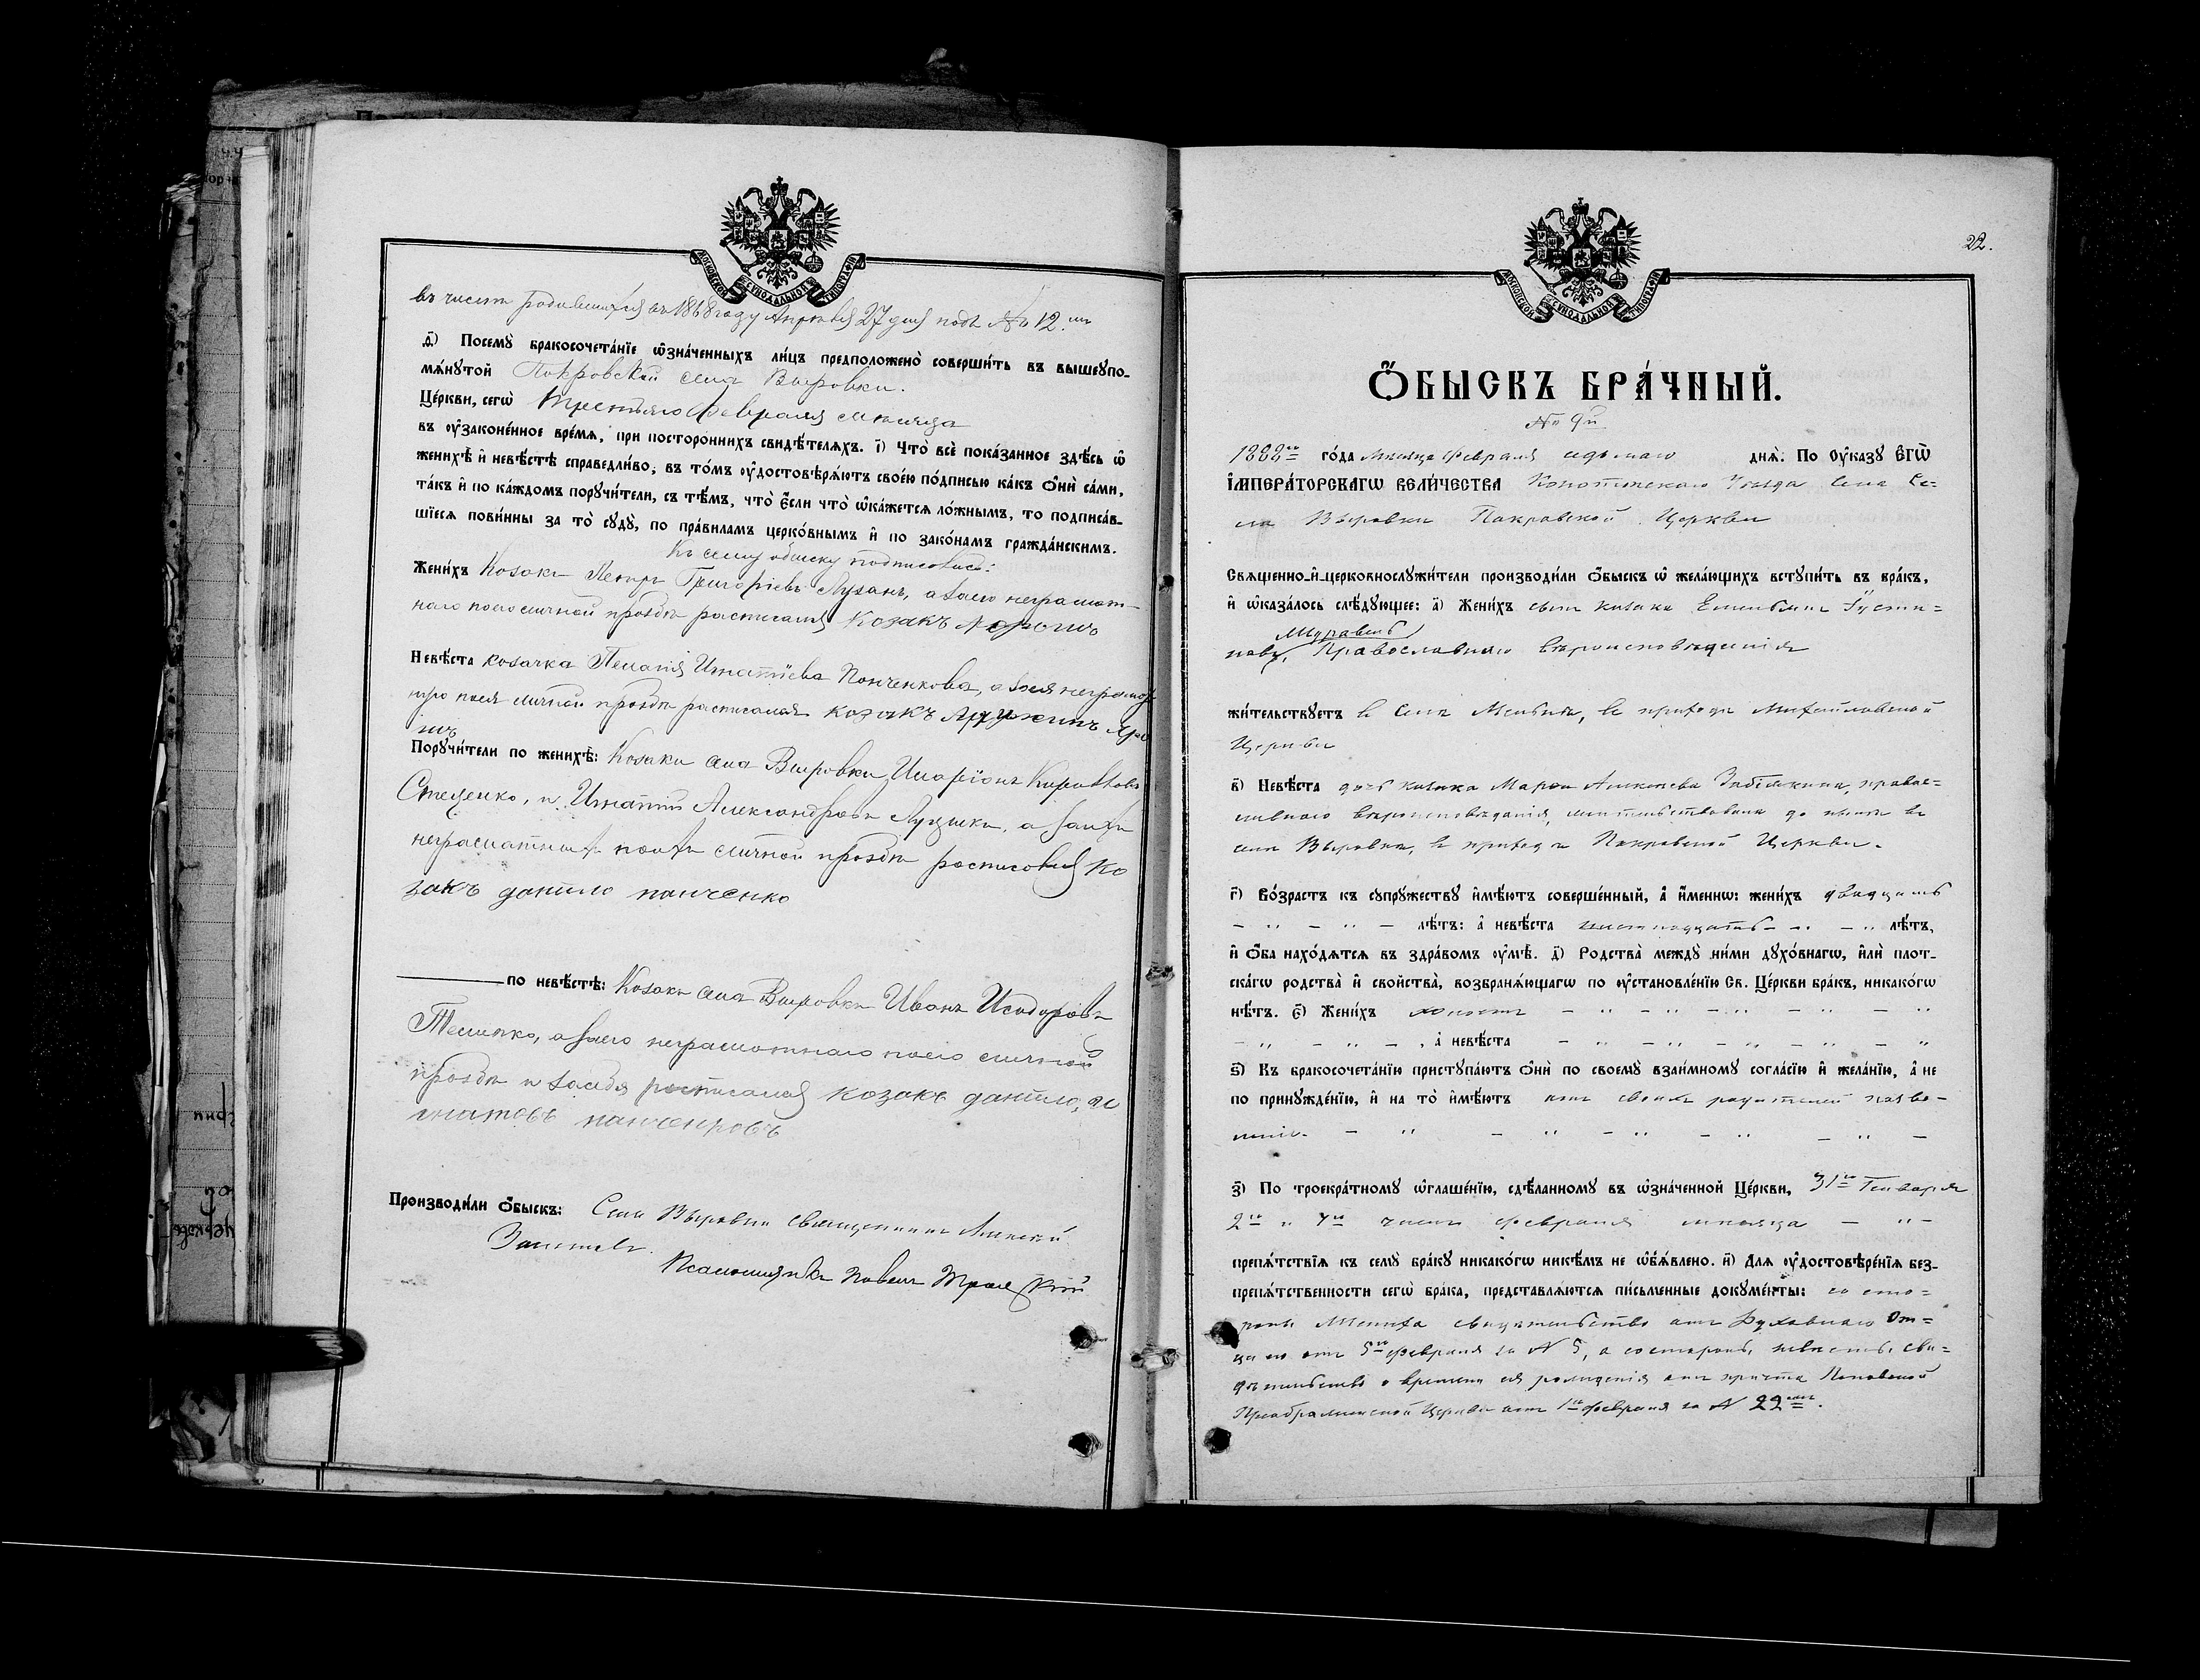 МОСКОВСКОЙ СѴНОДАЛЬНОЙ ТИПОГРАФІИ
въ числѣ родившихся въ 1868 году Апрѣля 27 дня подъ № 12.мъ
д҃) Посемꙋ бракосочета́нїе ѡ҆зна́ченныхъ ли́цъ предположено̀ соверши́ть въ вышеꙋпо-
мѧ́нꙋтой Покровской села Выровки.
Це́ркви, сегѡ̀ третьяго Февраля мѣсяца
въ ᲂу҆законе́нное вре́мѧ, при посторо́ннихъ свидѣ́телѧхъ. і҃) Что̀ всѐ пока́занное здѣ́сь ѡ҆
женихѣ̀ и҆ невѣ́стѣ справедли́во; въ то́мъ ᲂу҆достовѣрѧ́ютъ свое́ю по́дписью ка́къ ѻ҆нѝ са́ми,
та́къ и҆ по ка́ждомъ порꙋчи́тели, съ тѣ́мъ, что̀ є҆́сли что̀ ѡ҆ка́жетсѧ ло́жнымъ, то подписа́в-
шїесѧ пови́нны за то̀ сꙋдꙋ̀, по пра́виламъ церко́внымъ и҆ по зако́намъ гражда́нскимъ.
Къ сему обыску подписались:
Жени́хъ Козакъ Петръ Григорьевъ Лузанъ, а за его неграмот-
наго по его личной прозбѣ росписался Козакъ
Невѣ́ста козачка Пелагія Игнатіева Понченкова, а за ея неграмот
ную по ея личной прозбѣ росписался козакъ
Порꙋчи́тели по женихѣ̀: Козаки села Выровки Иларіонъ
Стеценко, и Игнатій Александровъ Луцик, а за ихъ
неграмотныхъ по ихъ личной прозбѣ росписовался Ко
закъ данило панченко
по невѣ́стѣ: Козакъ села Выровки Иванъ Исидоровъ
а за его неграмотнаго по его личной
прозбѣ и за себя росписался козакъ данило, иг
натовъ
Производи́ли ѻ҆́быскъ: Села Выровки священникъ Алексѣй
Псаломщикъ Павелъ
22.
МОСКОВСКОЙ СѴНОДАЛЬНОЙ ТИПОГРАФІИ
Ѻ҆́БЫСКЪ БРА́ЧНЫЙ.
№ 9й
1888го го́да мѣсяца Февраля седьмаго днѧ̀. По ᲂу҆ка́зꙋ Є҆ГѠ̀
І҆МПЕРА́ТОРСКАГѠ ВЕЛИ́ЧЕСТВА Конотопскаго Уѣзда Села Се-
ла Выровки Покровской Церкви
Сщ҃е́нно-и҆-церковнослꙋжи́тели производи́ли ѻ҆́быскъ ѡ҆ жела́ющихъ встꙋпи́ть въ бра́къ,
и҆ ѡ҆каза́лось слѣ́дꙋющее: а҃) Жени́хъ сынъ козака Емельянъ Іустин=
Муравель
новъ, Православнаго вѣроисповѣданія
жи́тельствꙋетъ въ Селѣ въ приходѣ Михайловской
Церкви
в҃) Невѣ́ста дочь козака Марѳа Алексѣева правос=
лавнаго вѣроисповѣданія, жительствовала до нынѣ въ
селѣ Выровки, въ приходѣ Покровской Церкви.
г҃) Во́зрастъ къ сꙋпрꙋ́жествꙋ и҆мѣ́ютъ соверше́нный, а҆ и҆́меннѡ: жени́хъ двадцать
– „ – „ – лѣ́тъ: а҆ невѣ́ста шестнадцать – „ – „ лѣ́тъ,
и҆ ѻ҆́ба нахо́дѧтсѧ въ здра́вомъ ᲂу҆мѣ̀. д҃) Родства̀ междꙋ̀ ни́ми дꙋхо́внагѡ, и҆лѝ плот-
ска́гѡ родства̀ и҆ сво́йства̀, возбранѧ́ющагѡ по ᲂу҆становле́нїю Св. Це́ркви бра́къ, никако́гѡ
нѣ́тъ. є҃) Жени́хъ холостъ – „ – „ – „ – „ – „
– „ – „ – , а҆ невѣ́ста – „ – „ – „ – „ – „
ѕ҃) Къ бракосочета́нїю пристꙋпа́ютъ ѻ҆нѝ по своемꙋ̀ взаи́мномꙋ согла́сїю и҆ жела́нїю, а҆ не
по принꙋжде́нїю, и҆ на то̀ и҆мѣ́ютъ отъ своихъ родителей позво-
леніе. – „ – „ – „ – „ – „ –
з҃) По троекра́тномꙋ ѡ҆глаше́нїю, сдѣ́ланномꙋ въ ѡ҆зна́ченной Це́ркви, 31го Генваря
2го и 7го чиселъ Февраля мѣсяца – „ –
препѧ́тствїѧ къ семꙋ̀ бра́кꙋ никако́гѡ никѣ́мъ не ѡ҆б̾ѧ́влено. и҃) Для ᲂу҆достовѣре́нїѧ без-
препѧ́тственности сегѡ̀ бра́ка, представлѧ́ютсѧ пи́сьменные докꙋме́нты: со сто=
роны Жениха свидѣтельство отъ Духовнаго От=
ца его отъ 5го Февраля за № 5, а со стороны невѣсты сви=
дѣтельство о времени ея рожденія отъ причта Поповской
Преображенской Церкви отъ 1го Февраля за № 22емъ.